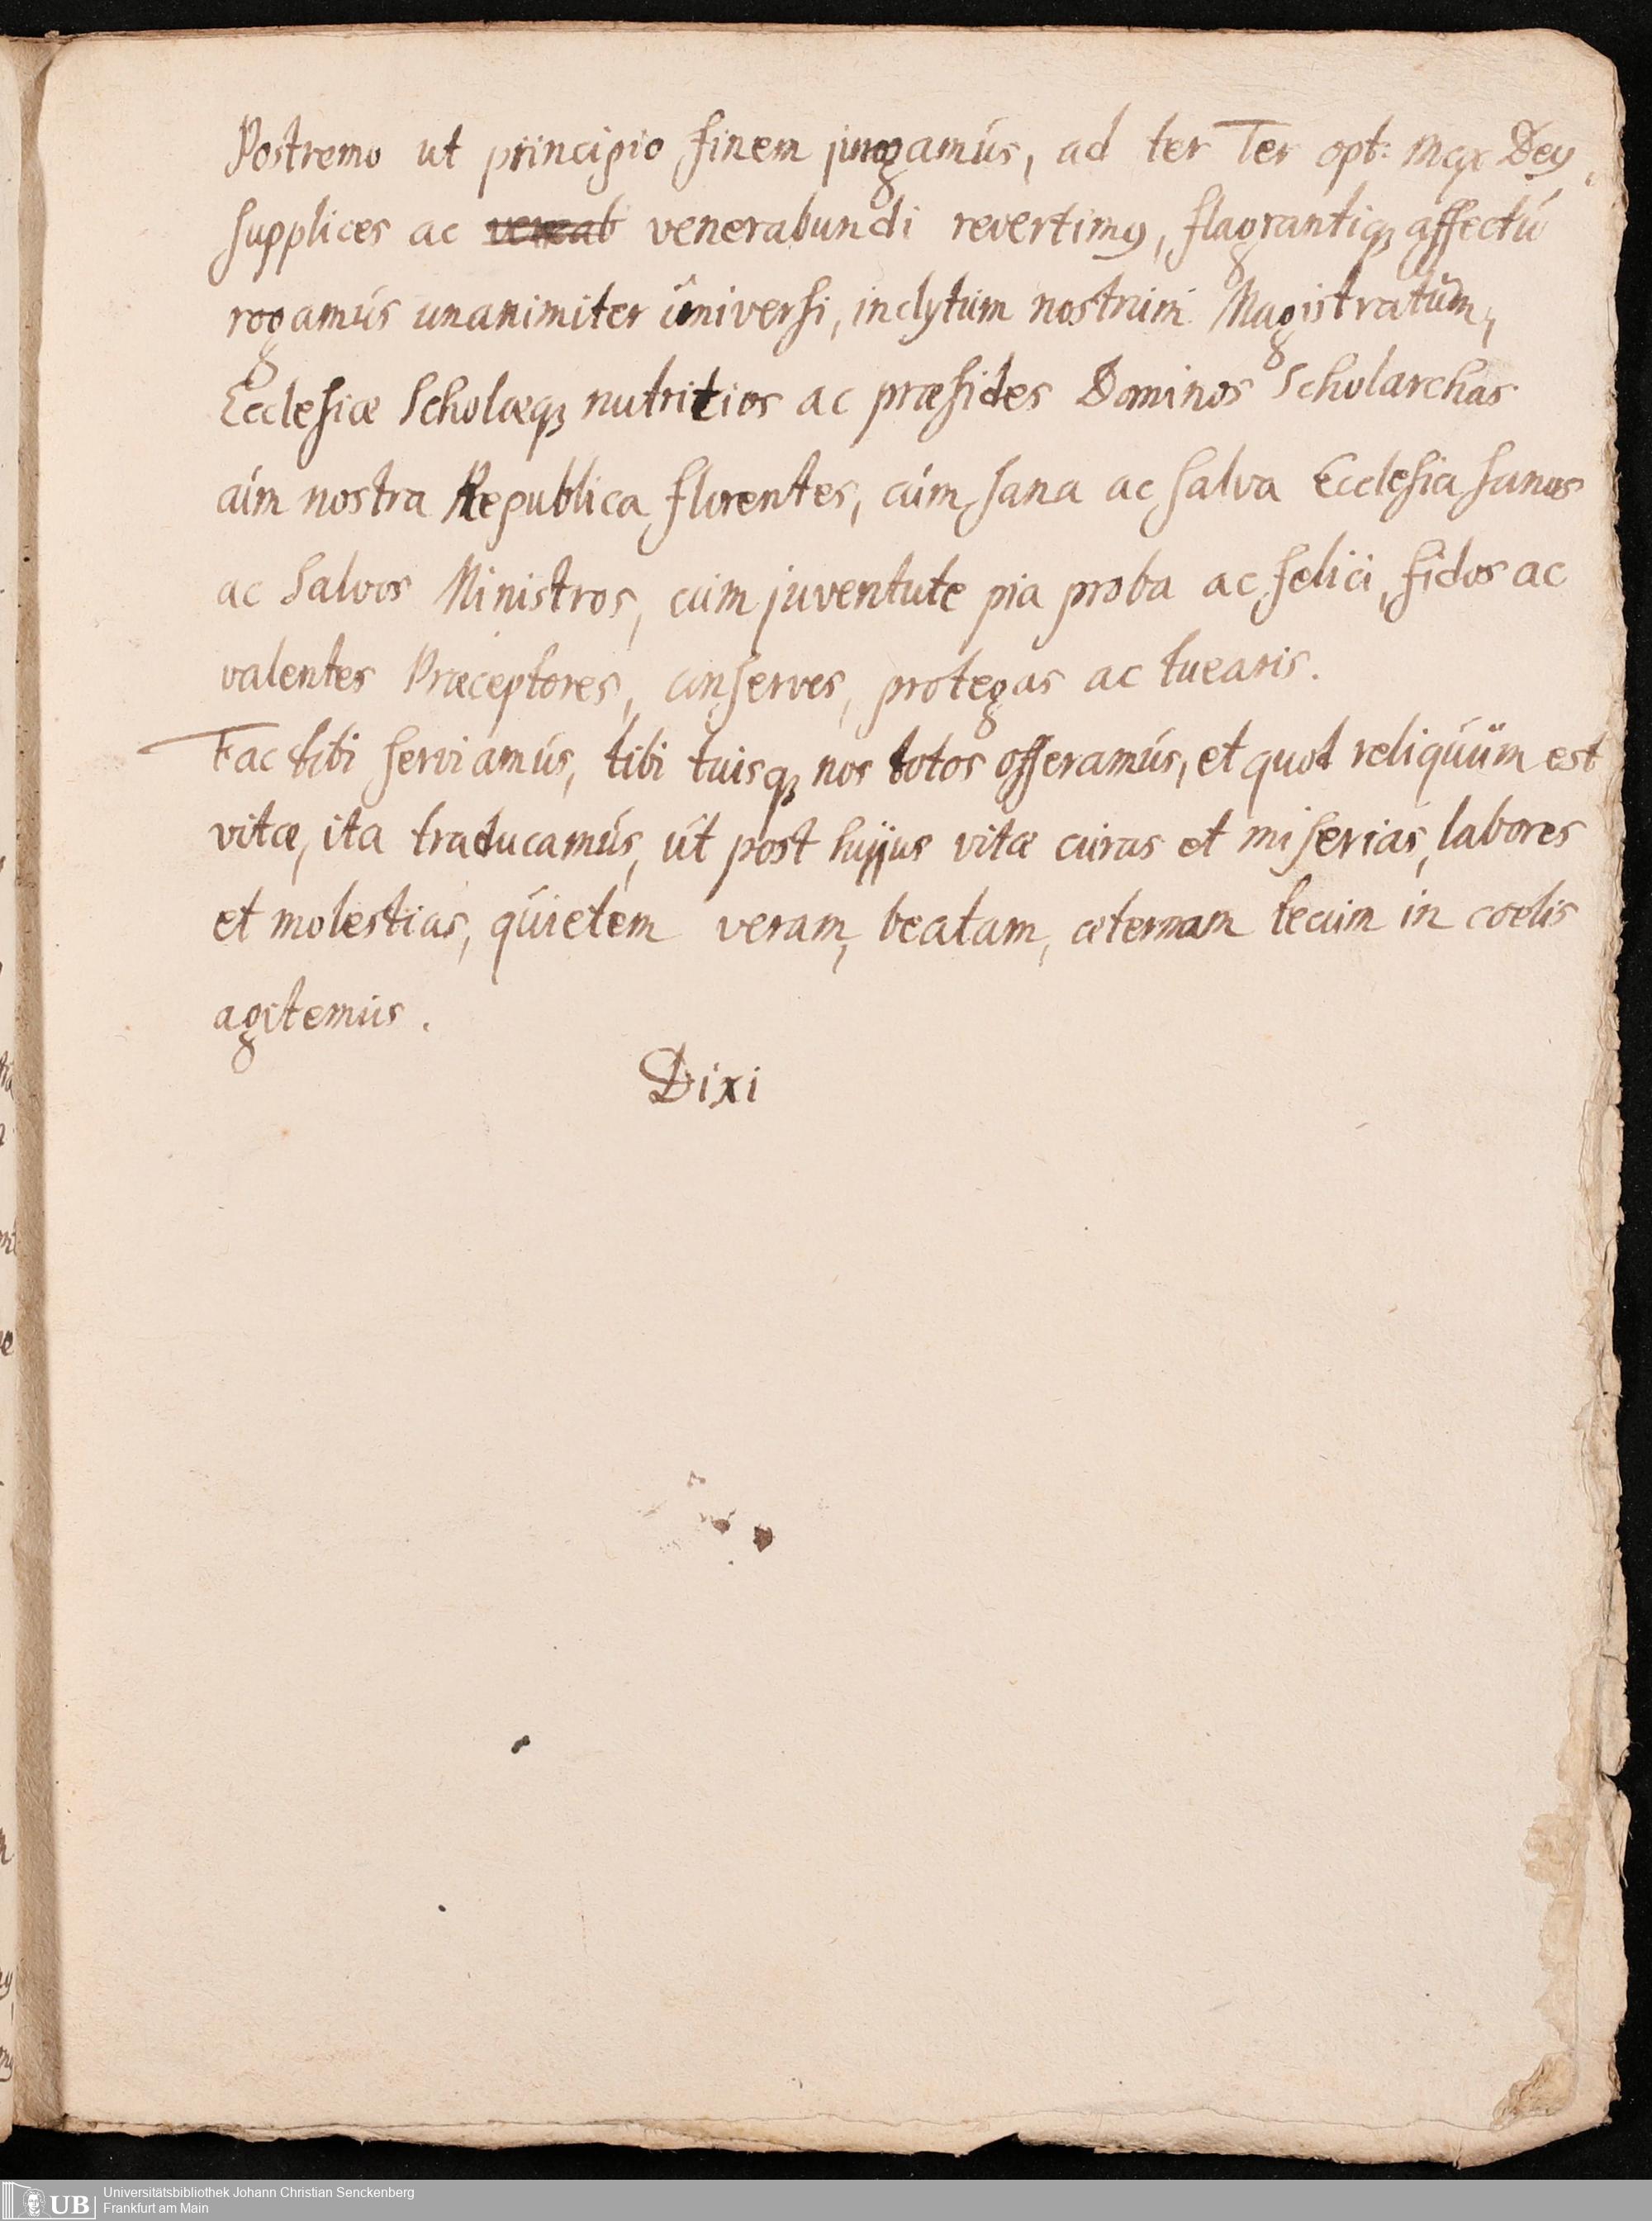 Postremo ut principio finem jungamús, ad ter Ter opt: Max Deu,
supplices ac venerabundi revertimꝰ, flagrantiqꝫ affectú
rogamús unanimiter universi, inclytúm nostrúm Magistratúm,
Ecclesiæ Scholæqꝫ nutritios ac præsides Dominos Scholarchas
cúm nostra Republica florentes, cúm sana ac salva Ecclesia sanos
ac salvos Ministros, cúm juventute pia proba ac felici, fidos ac
valentes Præceptores, conserves, protegas ac tuearis.
Fac tibi serviamús, tibi tuisqꝫ nos totos offeramús, et quot reliqúúm est
vitæ, ita traducamús, út post hujus vitæ cúras et miserias, labores
et molestias, qúietem veram, beatam, æternam tecúm in coelis
agitemús.
Dixi
UB Universitätsbibliothek Johann Christian Senckenberg
Frankfurt am Main